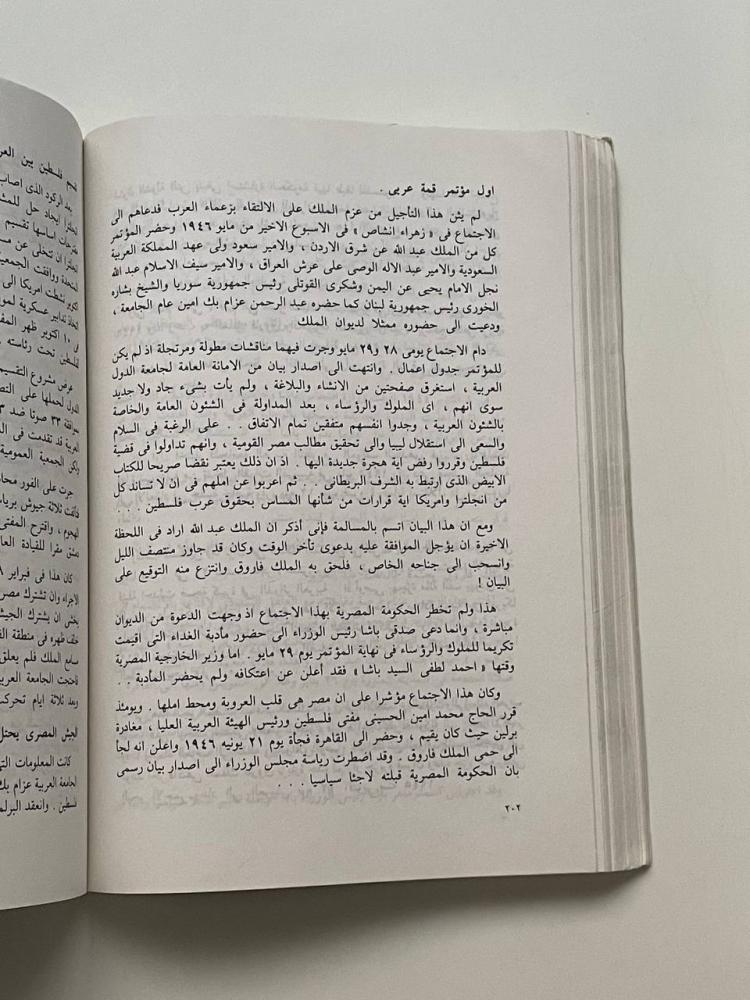 اول مؤتمر قمة عربى .
لم يثن هذا التأجيل من عزم الملك على الالتقاء بزعماء العرب فدعاهم الى
الاجتماع فى « زهراء انشاص » فى الاسبوع الاخير من مايو ١٩٤٦ وحضر المؤتمر
كل من الملك عبد الله عن شرق الاردن ، والامير سعود ولى عهد المملكة العربية
السعودية والامير عبد الاله الوصى على عرش العراق ، والامير سيف الاسلام عبد الله
نجل الامام يحيى عن اليمن وشكرى القوتلى رئيس جمهورية سوريا والشيخ بشاره
الخورى رئيس جمهورية لبنان كما حضره عبد الرحمن عزام بك امين عام الجامعة ،
ودعيت الى حضوره ممثلا لديوان الملك
دام الاجتماع يومى ٢٨ و٢٩ مايو وجرت فيهما مناقشات مطولة ومرتجلة اذ لم يكن
للمؤتمر جدول اعمال . وانتهت الى اصدار بيان من الامانة العامة لجامعة الدول
العربية ، استغرق صفحتين من الانشاء والبلاغة ، ولم يأت بشىء جاد ولا جديد
سوى انهم ، اى الملوك والرؤساء ، بعد المداولة فى الشئون العامة والخاصة
بالشئون العربية ، وجدوا انفسهم متفقين تمام الاتفاق . . على الرغبة فى السلام
والسعى الى استقلال ليبيا والى تحقيق مطالب مصر القومية ، وانهم تداولوا فى قضية
فلسطين وقرروا رفض اية هجرة جديدة اليها . اذ ان ذلك يعتبر نقضا صريحا للكتاب
الابيض الذى ارتبط به الشرف البريطانى . . ثم اعربوا عن املهم فى أن لا تساند كل
من انجلترا وامريكا اية قرارات من شأنها المساس بحقوق عرب فلسطين . . .
ومع ان هذا البيان اتسم بالمسالمة فإنى أذكر ان الملك عبد الله اراد فى اللحظة
الاخيرة ان يؤجل الموافقة عليه بدعوى تأخر الوقت وكان قد جاوز منتصف الليل
وانسحب الى جناحه الخاص ، فلحق به الملك فاروق وانتزع منه التوقيع على
البيان !
هذا ولم تخطر الحكومة المصرية بهذا الاجتماع اذ وجهت الدعوة من الديوان
مباشرة ، وانما دعى صدقى باشا رئيس الوزراء الى حضور مأدبة الغداء التى اقيمت
تكريما للملوك والرؤساء فى نهاية المؤتمر يوم ٢٩ مايو . اما وزير الخارجية المصرية
وقتها « احمد لطفى السيد باشا » فقد أعلن عن اعتكافه ولم يحضر المأدبة . .
وكان هذا الاجتماع مؤشرا على ان مصر هى قلب العروبة ومحط املها . ويومئذ
قرر الحاج محمد امين الحسينى مفتى فلسطين ورئيس الهيئة العربية العليا ، مغادرة
برلين حيث كان يقيم ، وحضر الى القاهرة فجأة يوم ٢١ يونيه ١٩٤٦ واعلن انه لجأ
الى حمى الملك فاروق . وقد اضطرت رياسة مجلس الوزراء الى اصدار بيان رسمى
بان الحكومة المصرية قبلته لاجئا سياسيا . . .
٢٠٢